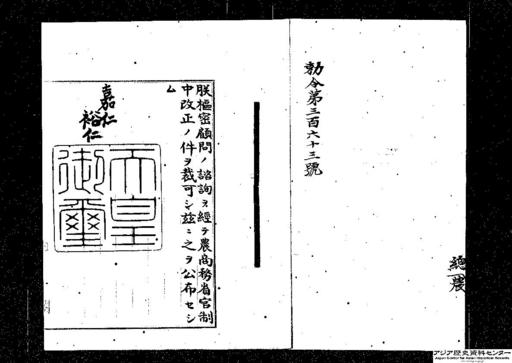 勅令第三百六十三號
總
農
朕樞密顧問ノ諮詢ヲ經テ農商務省官制
中改正ノ件ヲ裁可シ茲ニ之ヲ公布セシ
ム
嘉仁
裕仁
天皇
御璽
アジア歴史資料センター
Japan Center for Asian Historical Records